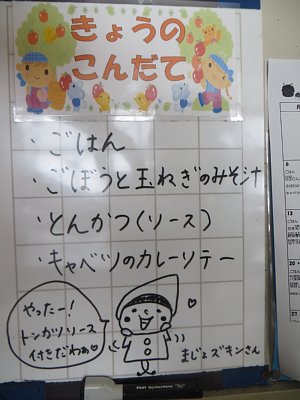 きょうの
こんだて
・ごはん
・ごぼうと玉ねぎのみそ汁
・とんかつ(ソース)
・キャベツのカレーソテー
やったー!
トンカツソース
付きだわぁ♡
まじょズキンさん
PILOT